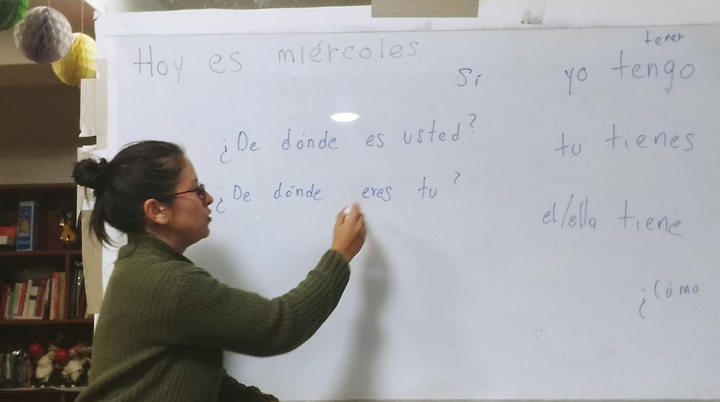 Hoy es miércoles.
Sí
¿De dónde es usted?
¿De dónde eres tu?
tener
yo tengo
tu tienes
el/ella tiene
¿Cómo